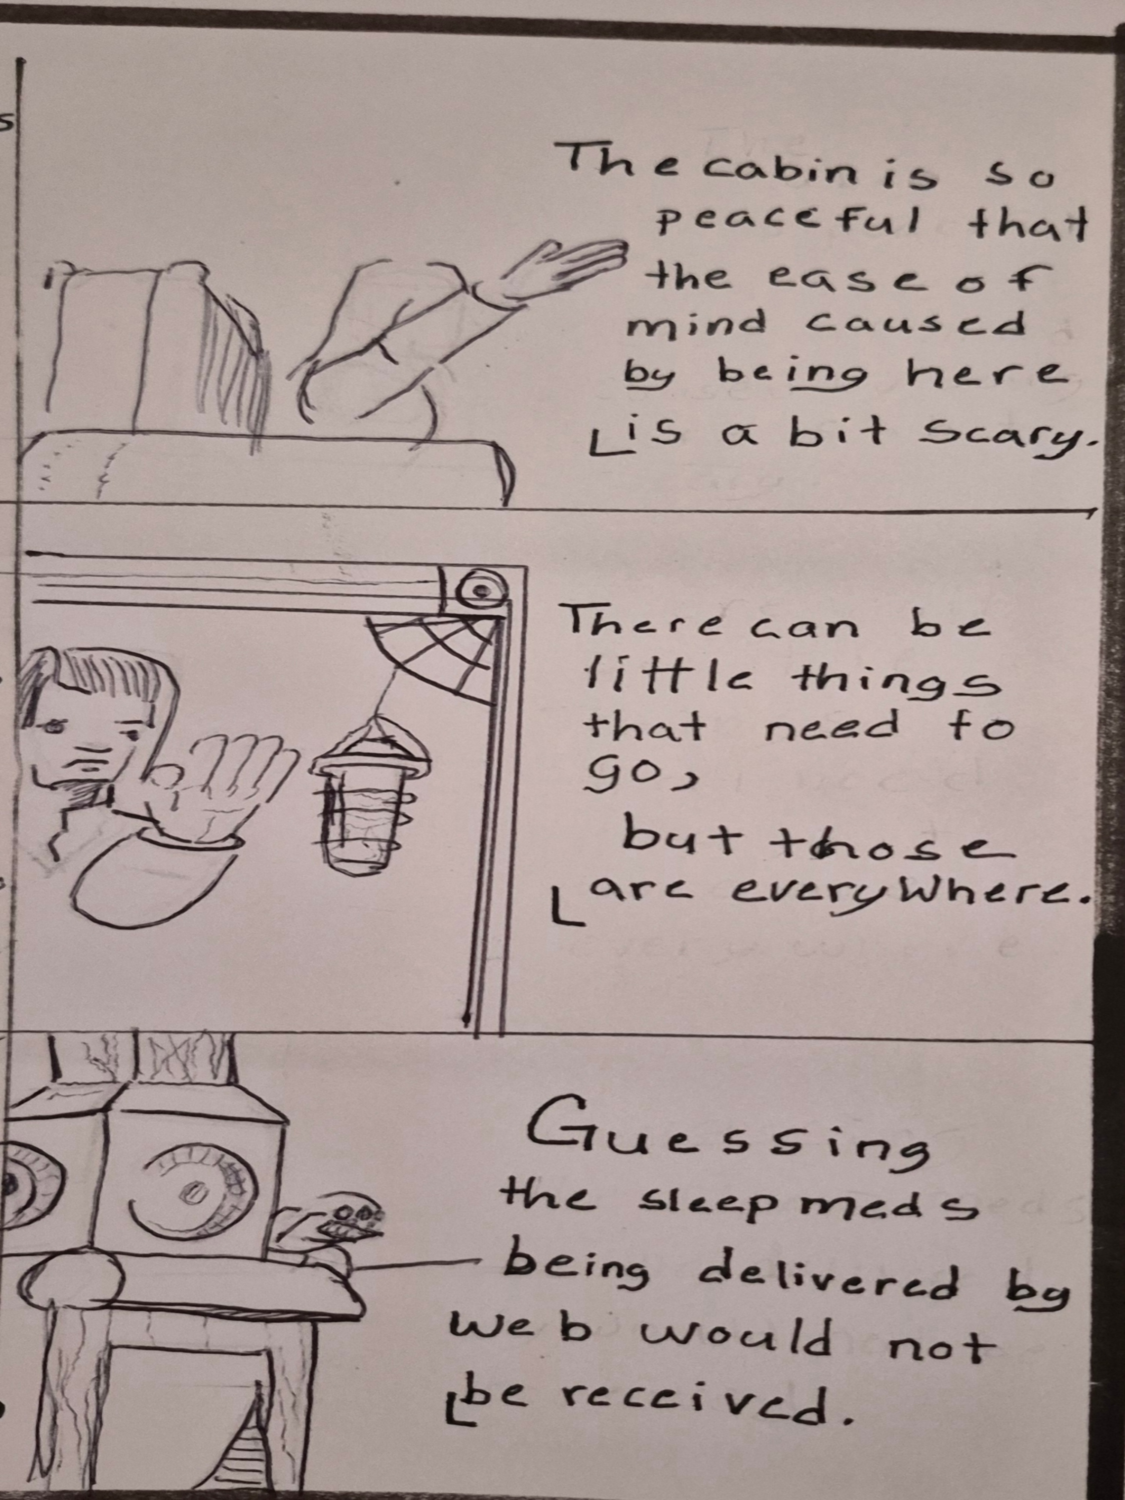 s
The cabin is so
peaceful that
the ease of
mind caused
by being here
is a bit scary.
There can be
little things
that need to
go,
but those
are everywhere.
Guessing
the sleep meds
being delivered by
web would not
be received.